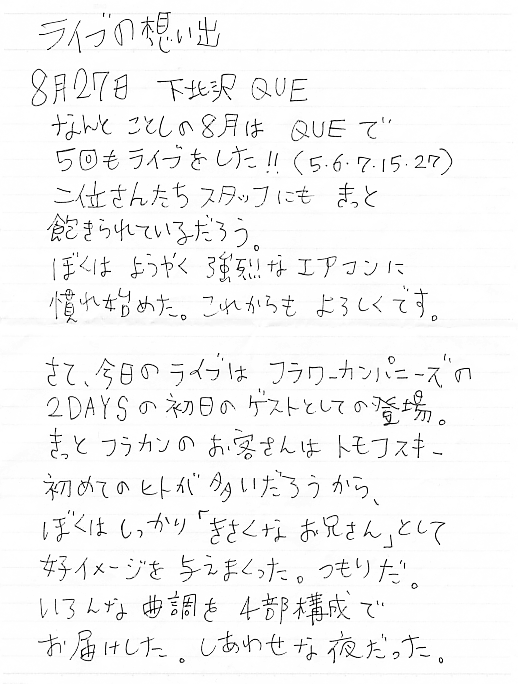 ライブの想い出
8月27日 下北沢 QUE
なんと ことしの8月は QUEで
5回もライブをした!!(5・6・7・15・27)
二位さんたち スタッフにも きっと
飽きられているだろう。
ぼくは ようやく 強烈な エアコンに
慣れ始めた。これからも よろしくです。
さて、今日の ライブは フラワーカンパニーズの
2DAYSの初日の ゲストとしての登場。
きっと フラカンの お客さんは トモフスキー
初めてのヒトが 多いだろうから、
ぼくは しっかり「きさくな お兄さん」として
好イメージを 与えまくった。つもりだ。
いろんな 曲調を 4部構成で
お届けした。しあわせな夜だった。